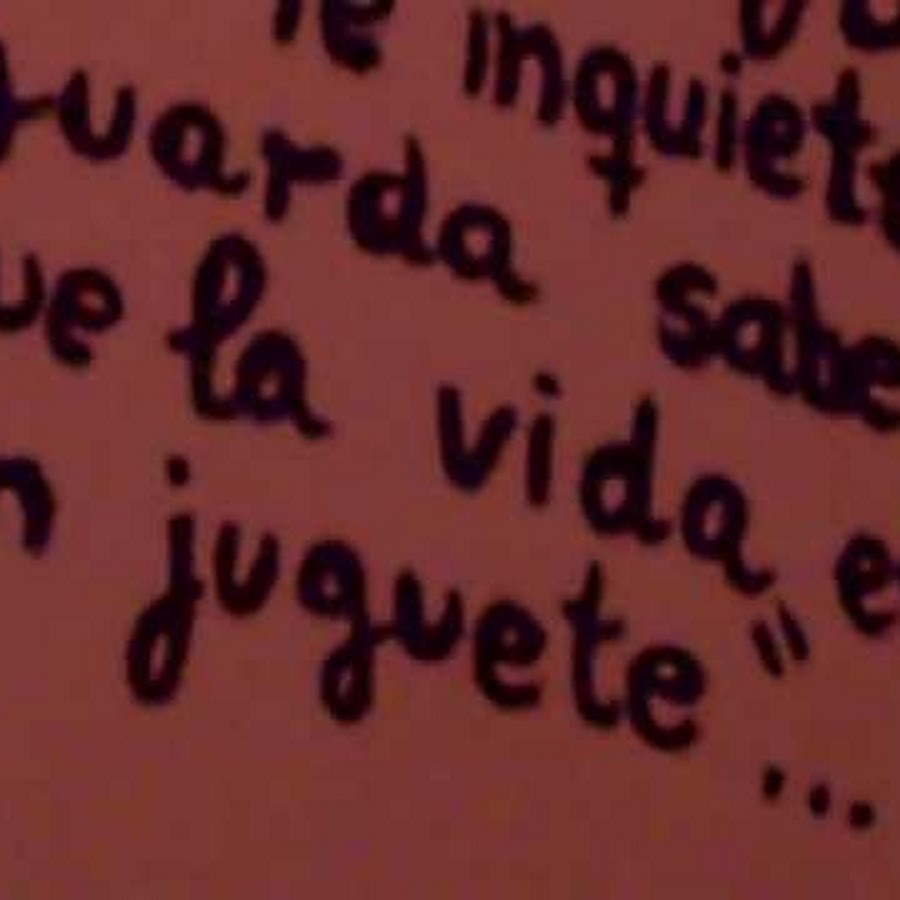 le inquiet
guarda sabe
ue la vida e
n juguete"
...